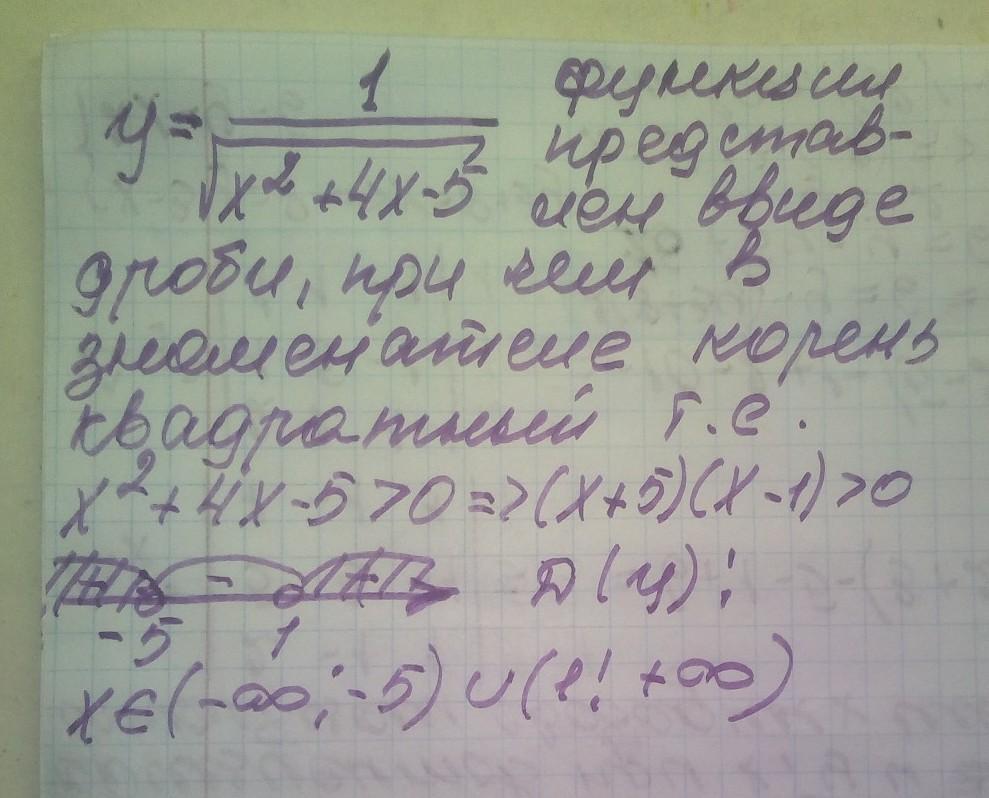 y = 1 / √(x² + 4x - 5) функции
представ-
лен ввиде
дроби, при чем в
знаменателе корень
квадратный т.е.
x² + 4x - 5 > 0 => (x + 5)(x - 1) > 0
+ - + Д(у):
-5 1
x ∈ (-∞; -5) ∪ (1; +∞)